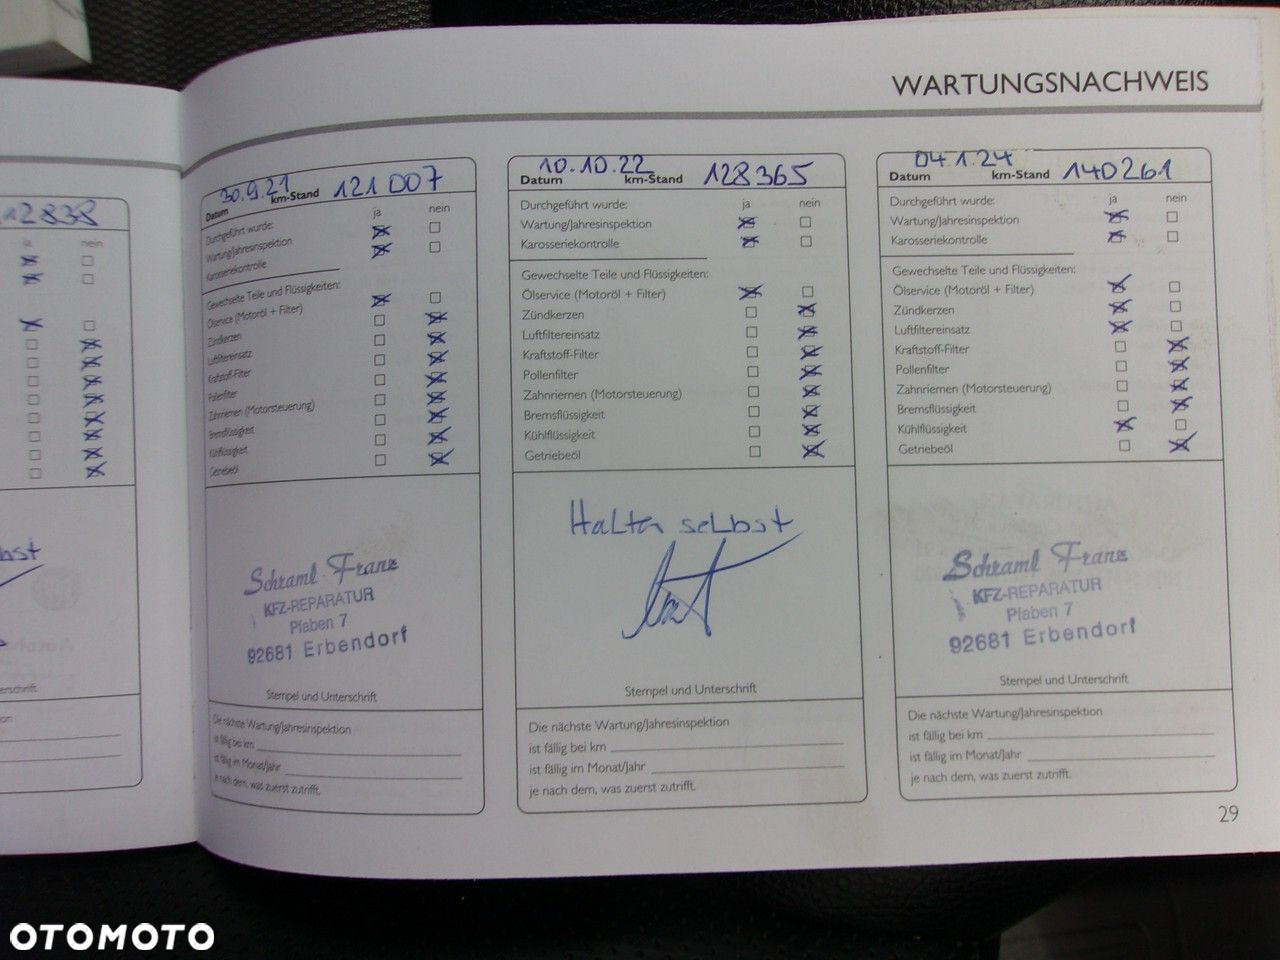 WARTUNGSNACHWEIS
112838
ja nein
30.9.21 121 007
Datum km-Stand
ja nein
Durchgeführt wurde:
Wartung/Jahresinspektion
Karosseriekontrolle
Gewechselte Teile und Flüssigkeiten:
Ölservice (Motoröl + Filter)
Zündkerzen
Luftfiltereinsatz
Kraftstoff-Filter
Pollenfilter
Zahnriemen (Motorsteuerung)
Bremsflüssigkeit
Kühlflüssigkeit
Getriebeöl
Schraml Franz
KFZ-REPARATUR
Plaben 7
92681 Erbendorf
Stempel und Unterschrift
Die nächste Wartung/Jahresinspektion
ist fällig bei km
ist fällig im Monat/Jahr
je nach dem, was zuerst zutrifft.
10.10.22 128365
Datum km-Stand
Durchgeführt wurde: ja nein
Wartung/Jahresinspektion
Karosseriekontrolle
Gewechselte Teile und Flüssigkeiten:
Ölservice (Motoröl + Filter)
Zündkerzen
Luftfiltereinsatz
Kraftstoff-Filter
Pollenfilter
Zahnriemen (Motorsteuerung)
Bremsflüssigkeit
Kühlflüssigkeit
Getriebeöl
Halter selbst
Stempel und Unterschrift
Die nächste Wartung/Jahresinspektion
ist fällig bei km
ist fällig im Monat/Jahr
je nach dem, was zuerst zutrifft.
04.1.24 140261
Datum km-Stand
Durchgeführt wurde: ja nein
Wartung/Jahresinspektion
Karosseriekontrolle
Gewechselte Teile und Flüssigkeiten:
Ölservice (Motoröl + Filter)
Zündkerzen
Luftfiltereinsatz
Kraftstoff-Filter
Pollenfilter
Zahnriemen (Motorsteuerung)
Bremsflüssigkeit
Kühlflüssigkeit
Getriebeöl
Schraml Franz
KFZ-REPARATUR
Plaben 7
92681 Erbendorf
Stempel und Unterschrift
Die nächste Wartung/Jahresinspektion
ist fällig bei km
ist fällig im Monat/Jahr
je nach dem, was zuerst zutrifft.
29
OTOMOTO